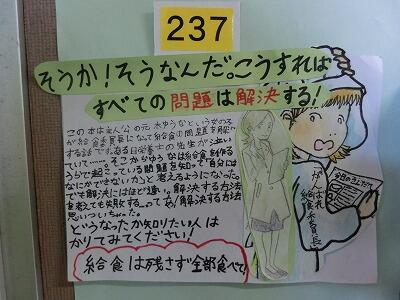 237
そうか!そうなんだ。こうすれば
すべての問題は解決する!
この本は主人公の元木ゆうなという女の子
が給食委員長になって給食の問題を解決
する話です。ある日栄養士の先生が泣い
ていて……。そこからゆうなは給食室の
うらで起こっている問題を知って「自分には
なにかできないか」と考えるようになった。
でも解決にはほど遠い。解決する方法
を考えても失敗する…。って、あ!解決する方法
思いついちゃった。
どうなったか知りたい人は
かりてみてください!
給食は残さず全部食べて
がんばれ
給食委員長
今日のこんだて